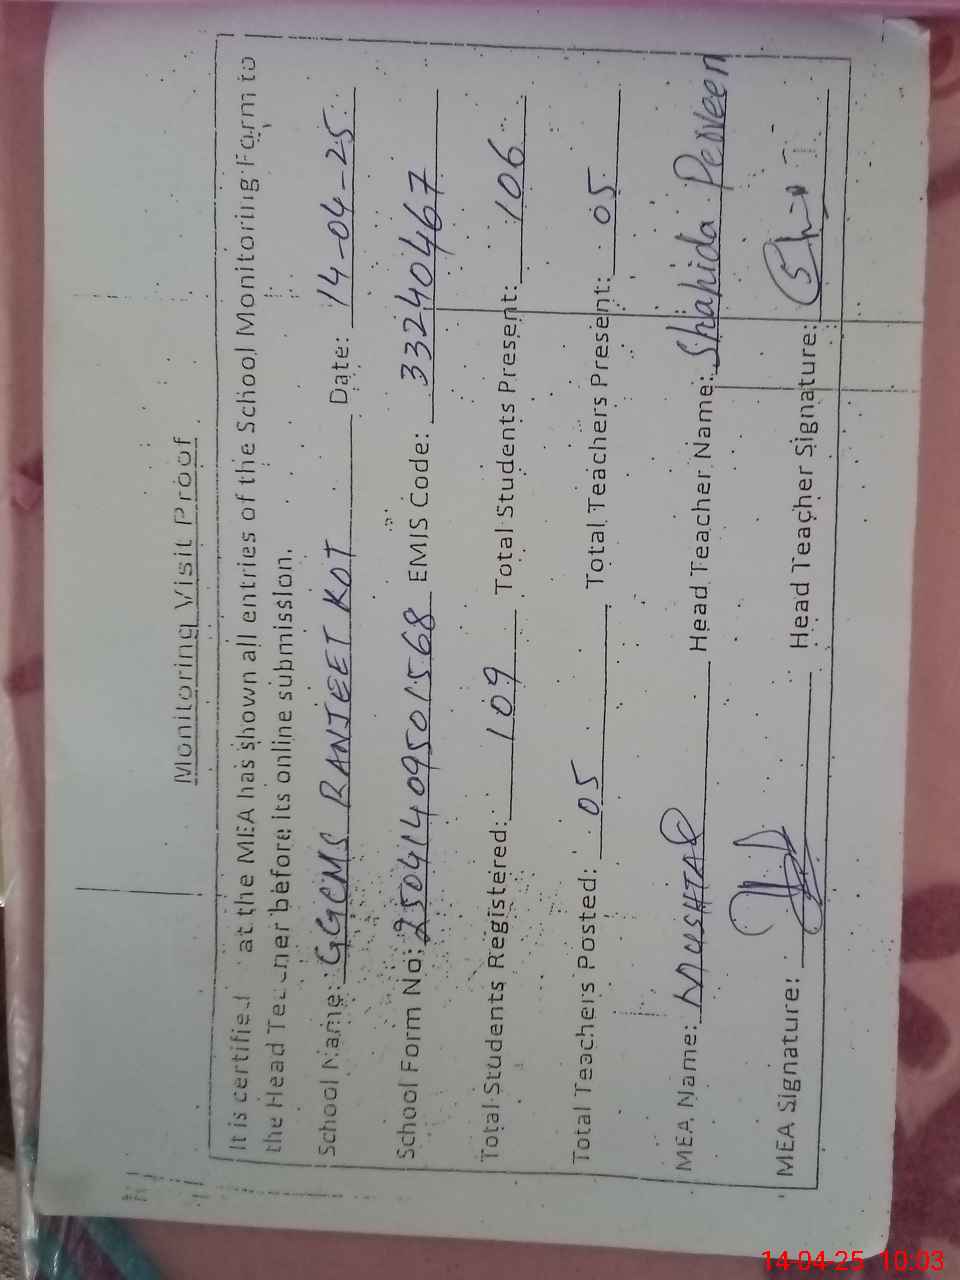 Monitoring Visit Proof
It is certified at the MEA has shown all entries of the School Monitoring Form to
the Head before its online submission.
School Name: GGCMS RANJEET KOT Date: 14-04-25
School Form No: 25041409501568 EMIS Code: 33240467
Total Students Registered: 109 Total Students Present: 106
Total Teachers Posted: 05 Total Teachers Present: 05
MEA Name: MUSHTAQ Head Teacher Name: Shahida Perveen
MEA Signature: Head Teacher Signature:
14-04-25 10:03